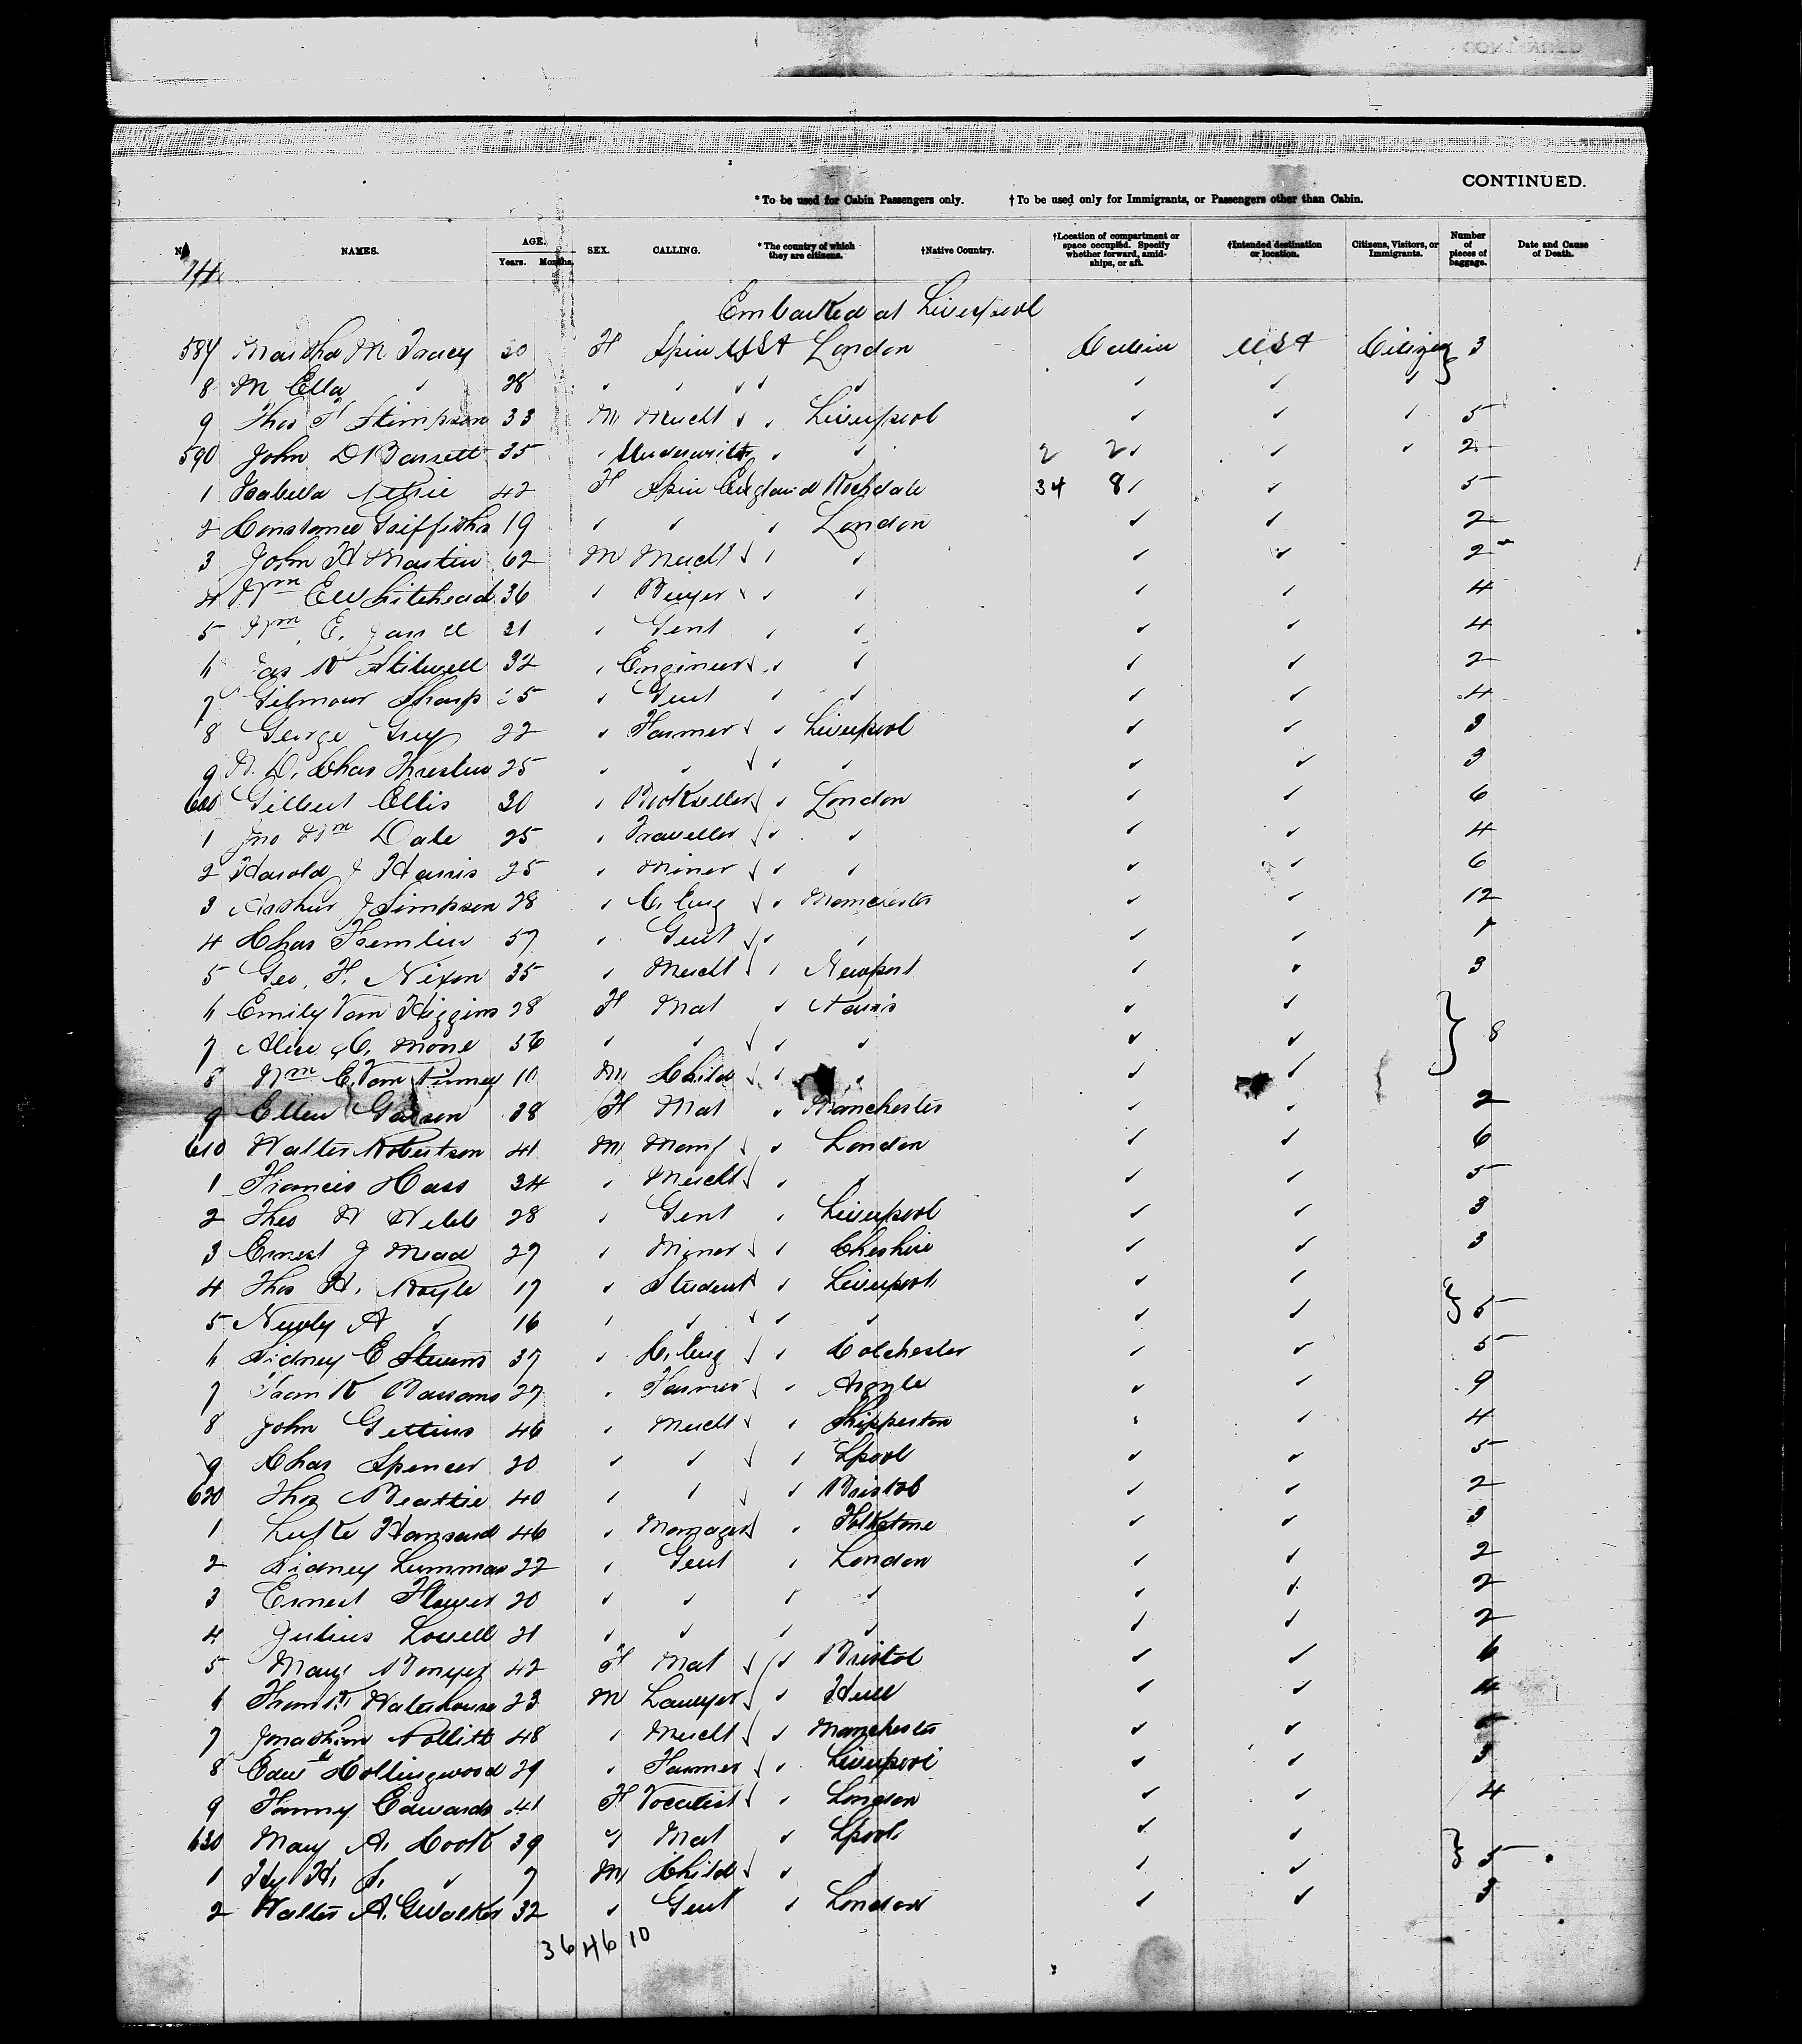 CONTINUED.
* To be used for Cabin Passengers only. † To be used only for Immigrants, or Passengers other than Cabin.
No NAMES. AGE. Years. Months. SEX. CALLING. * The country of which they are citizens. †Native Country. †Location of compartment or space occupied. Specify whether forward, amidships, or aft. †Intended destination or location. Citizens, Visitors, or Immigrants. Number of pieces of baggage. Date and Cause of Death.
14
Embarked at Liverpool
587 Martha M Tracy 30 F Spin USA London Cabin USA Citizen 3
8 M Ella " 28
9 Thos F Stimpson 33 M Mercht Liverpool 5
590 John D Barrett 35 Underwriter 2 2 2
1 Isabella 42 F Spin England Rochdale 34 8 5
2 Constance Griffiths 19 London 2
3 John H Martin 62 M Mercht 2
4 Wm E Whitehead 36 Buyer 4
5 Wm E. 21 Gent 4
6 Jas R Stilwell 32 Engineer 2
7 Gilmour Sharp 25 Gent 4
8 George Grey 22 Farmer Liverpool 3
9 Chas 25 3
600 Gilbert Ellis 30 Bookseller London 6
1 Jno Wm Dale 25 Traveller 4
2 Harold J Harris 25 Miner 6
3 Arthur J Simpson 28 C. Eng Manchester 12
4 Chas Hemlin 57 Gent 1
5 Geo. F. Nixon 35 Mercht Newport 3
6 Emily Van Higgins 28 F Mat Paris
7 Alice C. Mone 56 8
8 Wm E. Van 10 M Child
9 Ellen 38 F Mat Manchester 2
610 Walter Robertson 41 M Manf London 6
1 Francis Cass 34 Mercht 5
2 Theo W Webb 28 Gent Liverpool 3
3 Ernest J Mead 27 Miner Cheshire 3
4 Thos H. Royle 17 Student Liverpool
5 A " 16 5
6 Sidney E Stevens 37 C. Eng Colchester 5
7 Frank 27 Farmer Argyle 9
8 John Gettins 46 Mercht Shipperton 4
9 Chas Spencer 30 Lpool 5
620 Thos Beattie 40 Bristol 2
1 Luke Hansard 46 Manager Folkstone 3
2 Sidney Lummas 22 Gent London 2
3 Ernest Flower 20 2
4 Julius Lovell 21 2
5 Mary 42 F Mat Bristol 6
6 Frank Waterhouse 23 M Lawyer Hull 4
7 Jonathan Nollitt 48 Mercht Manchester
8 Edwd Collingwood 29 Farmer Liverpool 3
9 Fanny Edwards 41 F Vocalist London 4
630 Mary A. Cook 39 " Mat Lpool
1 Hy H. S. " 7 M Child 5
2 Walter A. G Walker 32 Gent London 3
36 46 10